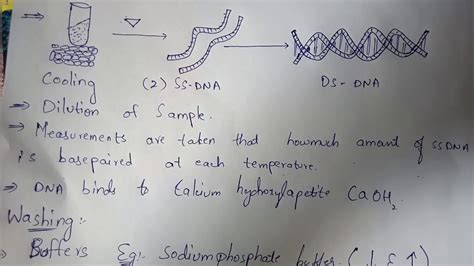 Cooling
(2) SS-DNA
DS-DNA
⇒ Dilution of Sample.
⇒ Measurements are taken that howmuch amount of SSDNA
is basepaired at each temperature.
⇒ DNA binds to Calcium hydroxylapetite CaOH2.
Washing :-
⇒ Buffers Eg:- Sodiumphosphate buffer. (↓ & ↑)